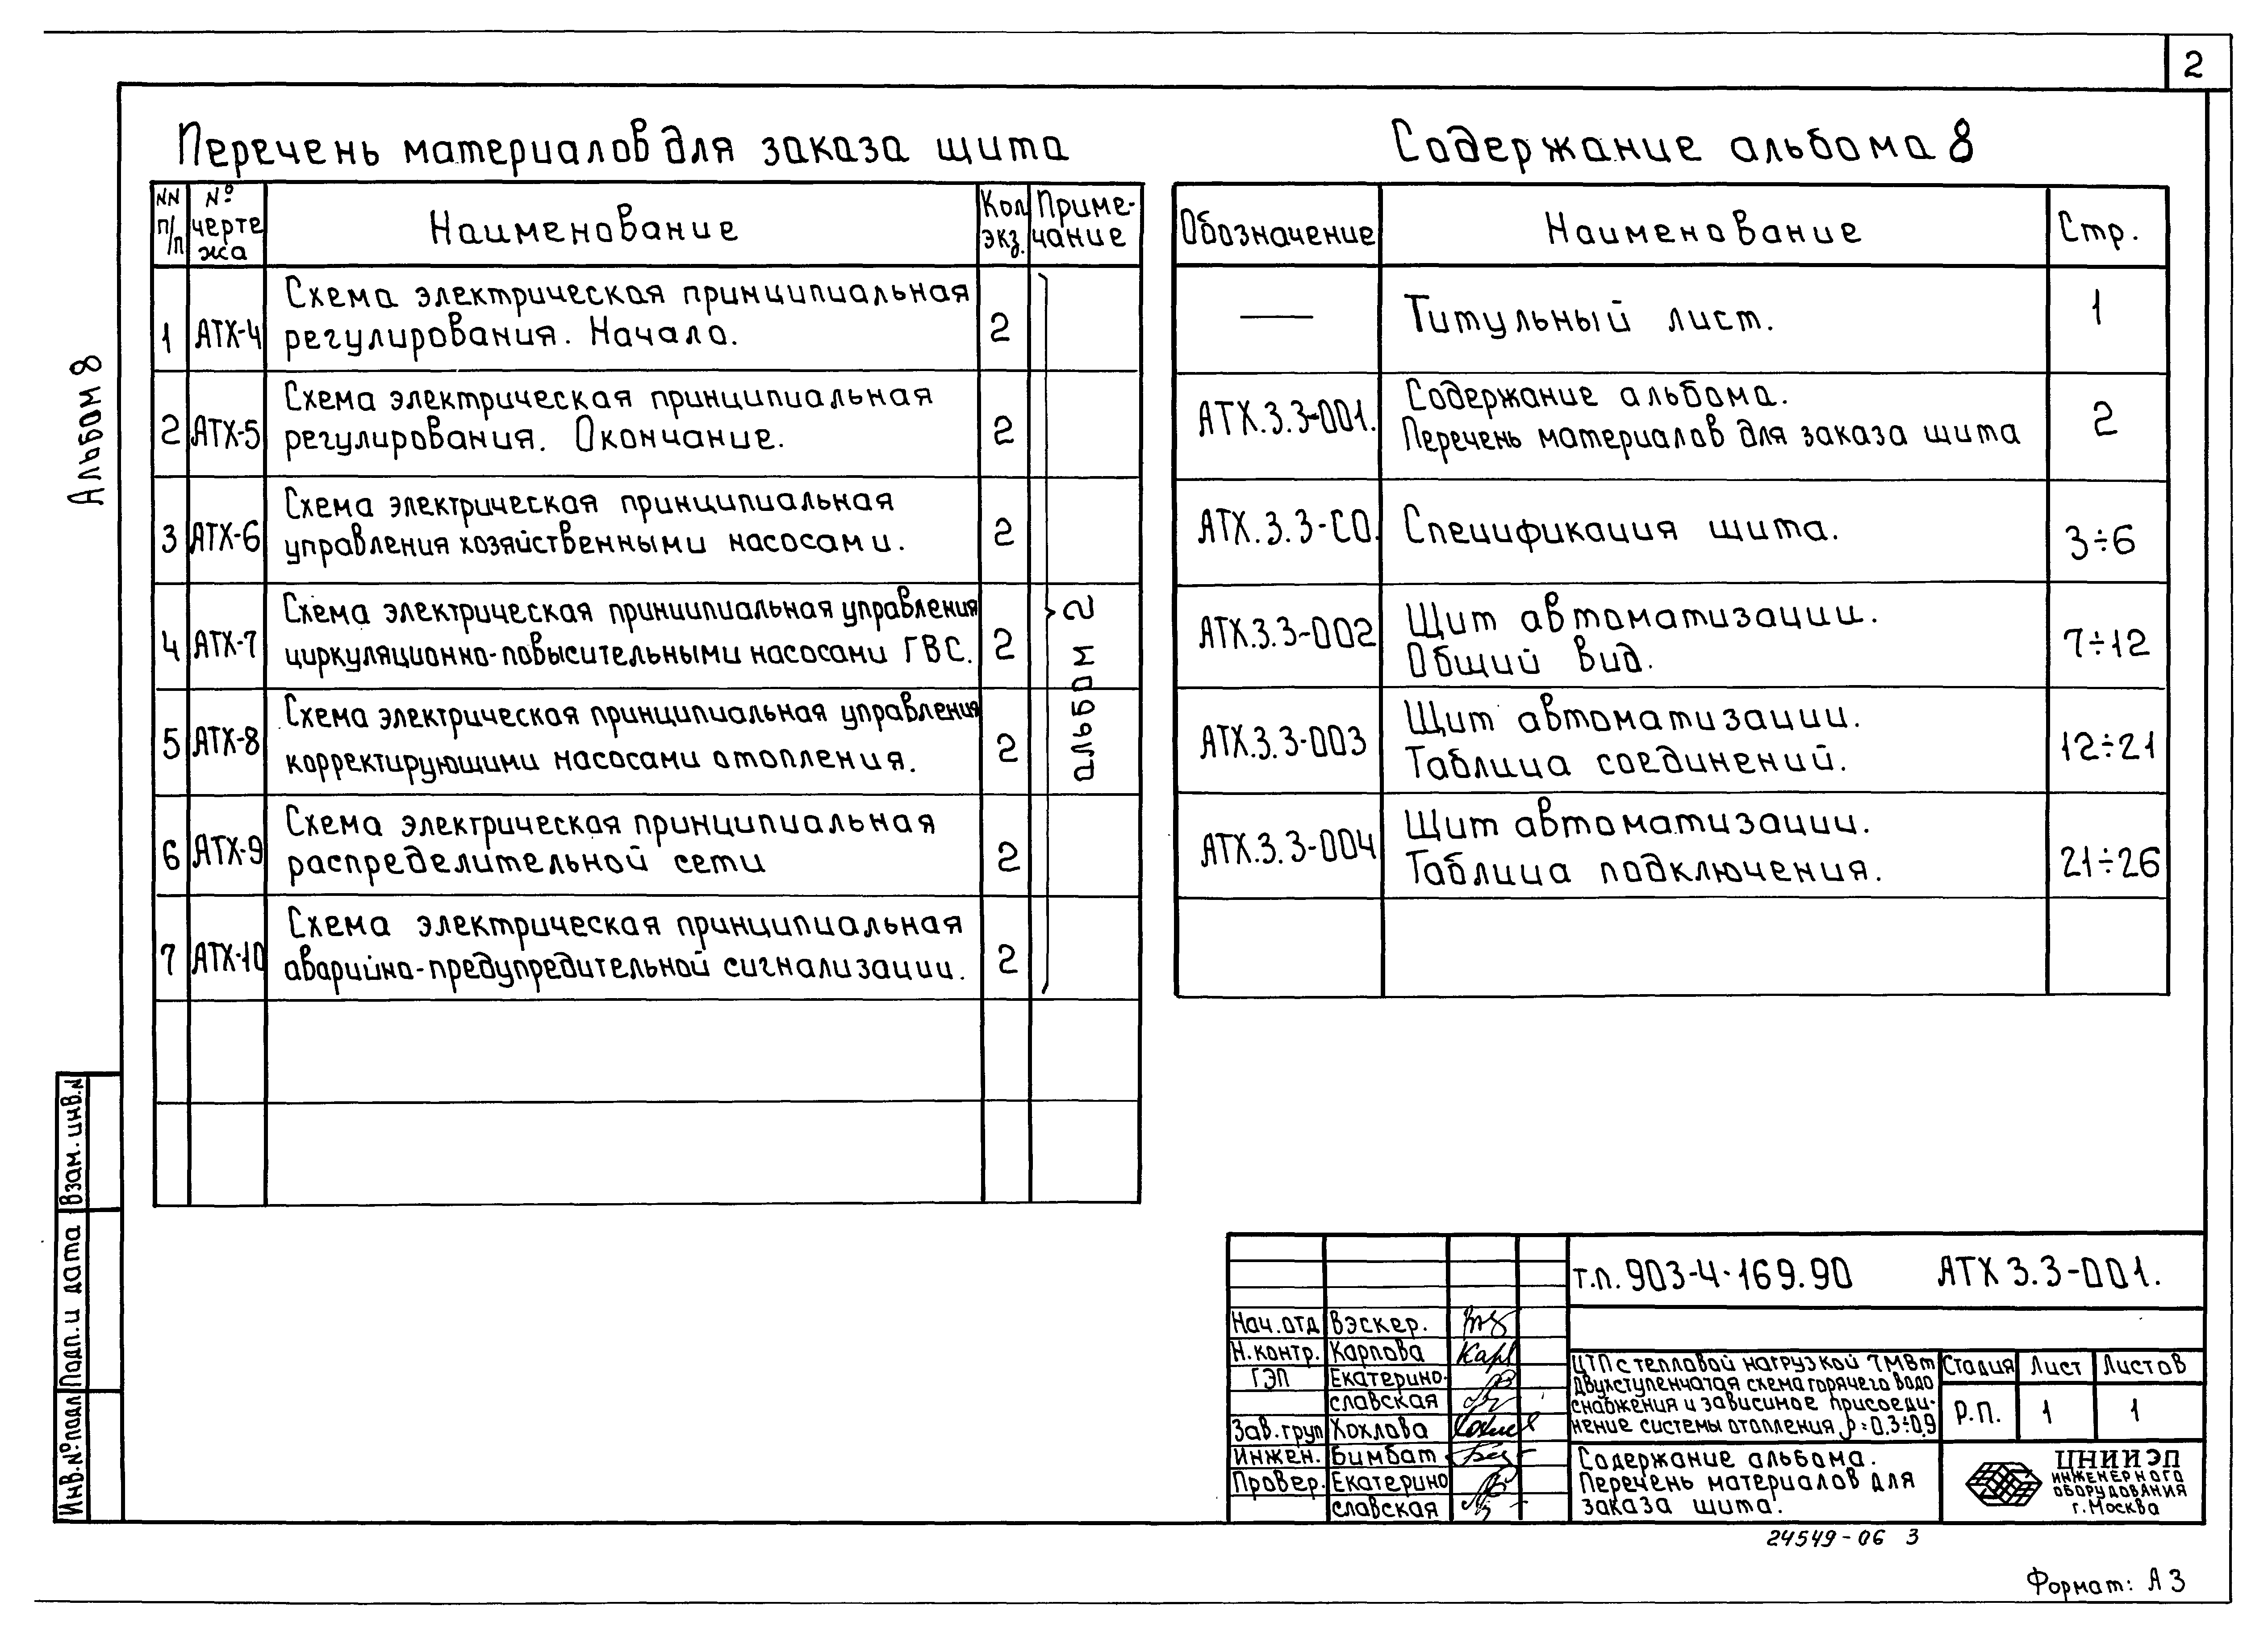 2
Перечень материалов для заказа щита
NN п/п
№ чертежа
Наименование
Кол. экз.
Примечание
1 АТХ-4 Схема электрическая принципиальная
регулирования. Начало. 2
2 АТХ-5 Схема электрическая принципиальная
регулирования. Окончание. 2
3 АТХ-6 Схема электрическая принципиальная
управления хозяйственными насосами. 2
4 АТХ-7 Схема электрическая принципиальная управления
циркуляционно-повысительными насосами ГВС. 2
5 АТХ-8 Схема электрическая принципиальная управления
корректирующими насосами отопления. 2
6 АТХ-9 Схема электрическая принципиальная
распределительной сети 2
7 АТХ-10 Схема электрическая принципиальная
аварийно-предупредительной сигнализации. 2
альбом 2
Содержание альбома 8
Обозначение Наименование Стр.
— Титульный лист. 1
АТХ.3.3-001. Содержание альбома.
Перечень материалов для заказа щита 2
АТХ.3.3-СО. Спецификация щита. 3÷6
АТХ.3.3-002 Щит автоматизации.
Общий вид. 7÷12
АТХ.3.3-003 Щит автоматизации.
Таблица соединений. 12÷21
АТХ.3.3-004 Щит автоматизации.
Таблица подключения. 21÷26
Альбом 8
Взам. инв. N
Подп. и дата
Инв. № подл
т.п. 903-4-169.90 АТХ 3.3-001.
Нач. отд Вэскер.
Н. контр. Карпова
ГЭП Екатерино-
славская
Зав. груп Хохлова
Инжен. Бимбат
Провер. Екатерино
славская
ЦТП с тепловой нагрузкой 7 МВт
двухступенчатая схема горячего водо
снабжения и зависимое присоеди-
нение системы отопления ρ=0.3÷0.9
Стадия Лист Листов
Р.П. 1 1
Содержание альбома.
Перечень материалов для
заказа щита.
ЦНИИЭП
ИНЖЕНЕРНОГО
ОБОРУДОВАНИЯ
г. Москва
24549-06 3
Формат: А3